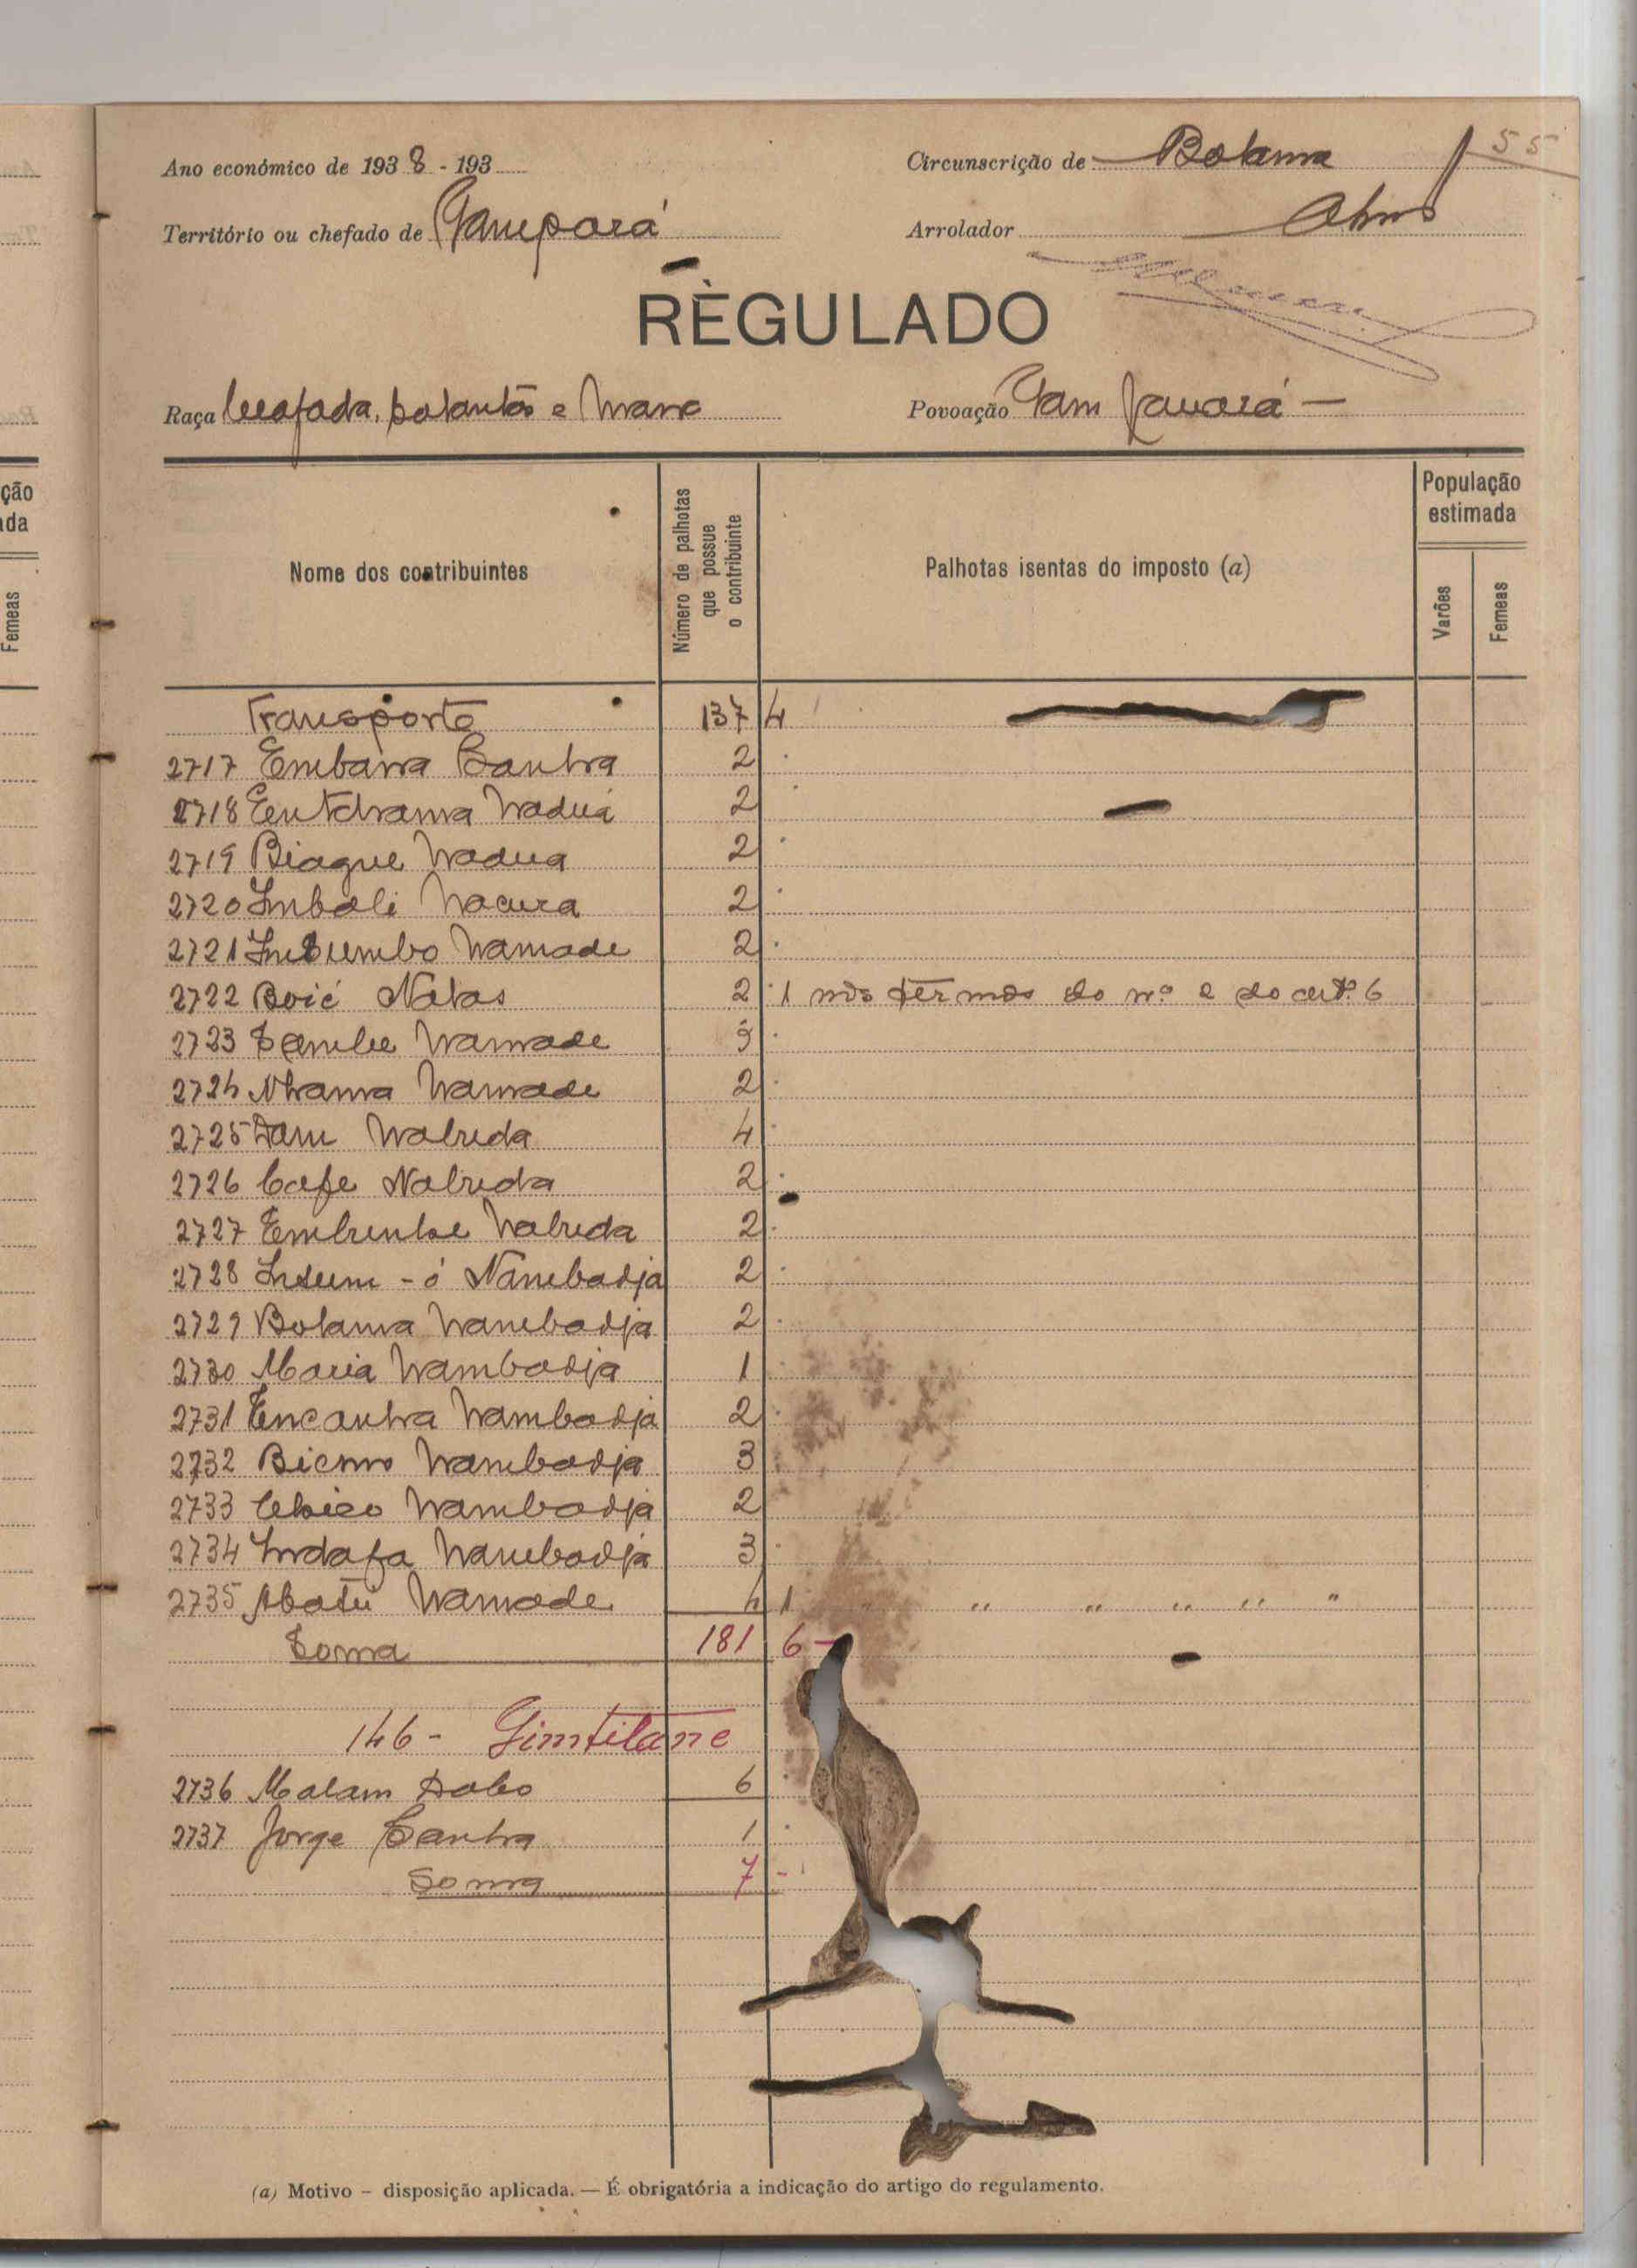 55
Ano económico de 1938 - 193
Circunscrição de Bolama
Território ou chefado de Gampará
Arrolador
RÈGULADO
Raça Beafada, balantas e
Povoação Gam
Nome dos contribuintes
Número de palhotas que possue o contribuinte
Palhotas isentas do imposto (a)
População estimada
Varões
Femeas
Transporte 137 4
2717 Embana 2
2718 Nadua 2
2719 Biague Nadua 2
2720 Imbali Nacura 2
2721 Namade 2
2722 Boié Natas 2 1 nos têrmos do nº 2 do artº 6
2723 Namade 3
2724 Nhama Namade 2
2725 Dam Nabuda 4
2726 Cafe Nabuda 2
2727 Nabuda 2
2728 - ó Nambadja 2
2729 Bolama Nambadja 2
2730 Maria Nambadja 1
2731 Encanha Nambadja 2
2732 Nambadja 3
2733 Chico Nambadja 2
2734 Indafa Nambadja 3
2735 Abatu Namade 4 1 " " " " " "
Soma 181 6 -
146 - Gimtilane
2736 Malam Dabo 6
2737 Jorge 1
Soma 7 -
(a) Motivo – disposição aplicada. — É obrigatória a indicação do artigo do regulamento.
ção
ada
Femeas